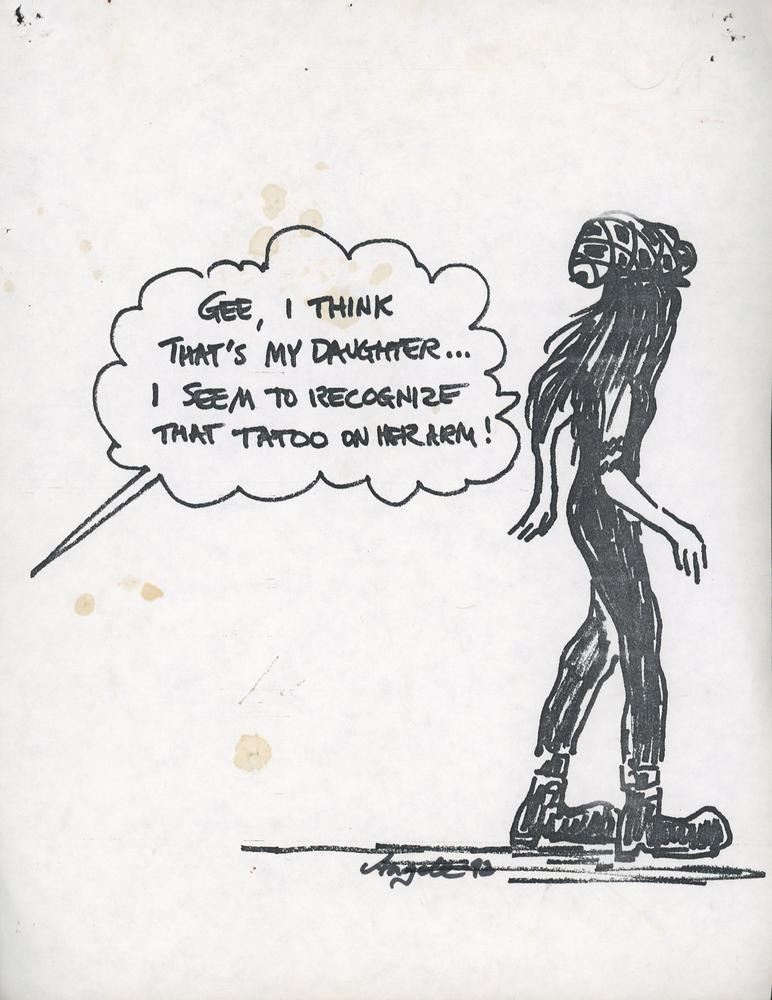 GEE, I THINK
THAT'S MY DAUGHTER...
I SEEM TO RECOGNIZE
THAT TATOO ON HER ARM!